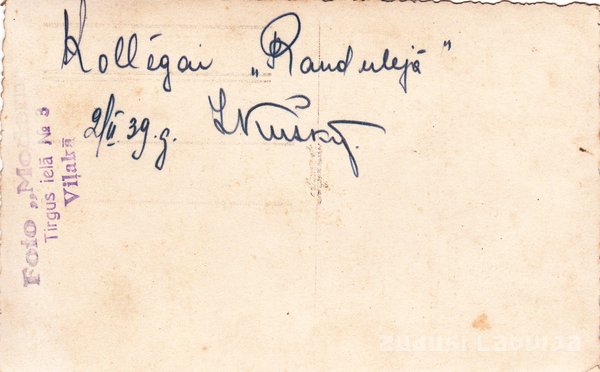 Kollēgai „Randulejā"
2/II 39. g.
Foto „Mo
Tirgus ielā № 3
Viļakā
Zudusī Latvija